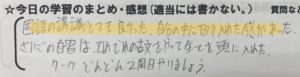 ☆今日の学習のまとめ・感想(適当には書かない。) 質問な
国語の講識とても良かった。自分の中に切り入れた感があった。
さいごの自習は、それぞれの教をやって全てを頭に入れた。
ワーク どんどん2周目やりましょう。